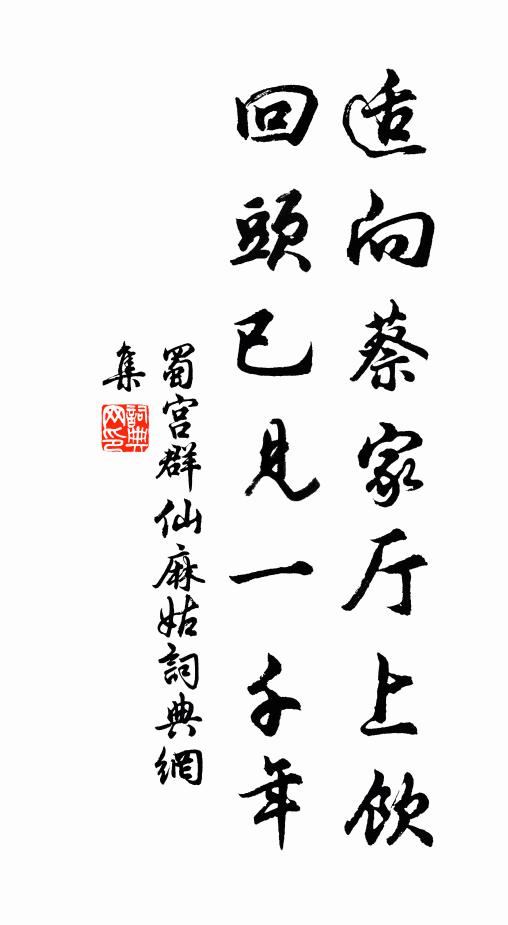 适向蔡家厅上飲
回頭已見一千年
蜀宫群仙麻姑詞典網
集
詞典
网印